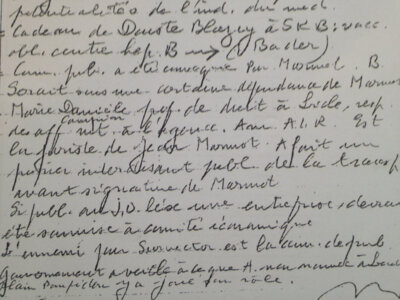 potentialités de l'ind. du med.
= Cadeau de Douste Blazy à SKB: vacc.
obl. contre hep. B → (Bader)
= Com. pub. a été Par Marmot. B.
Serait sous une certaine dépendance de Marmot
Marie Danièle prof. de droit à resp.
des aff. à l'agence. Anc. A.I.R. Est
la juriste de Jean Marmot. A fait un
papier interdisant publ. de la transp
avant signature de Marmot
Si publ. au J.O. lèse une entreprise, devra
été soumise à comité économique
L'ennemi pour est la com. de pub.
Gouvernement a veillé à ce que A.
Alain Pompidou y a joué son rôle.